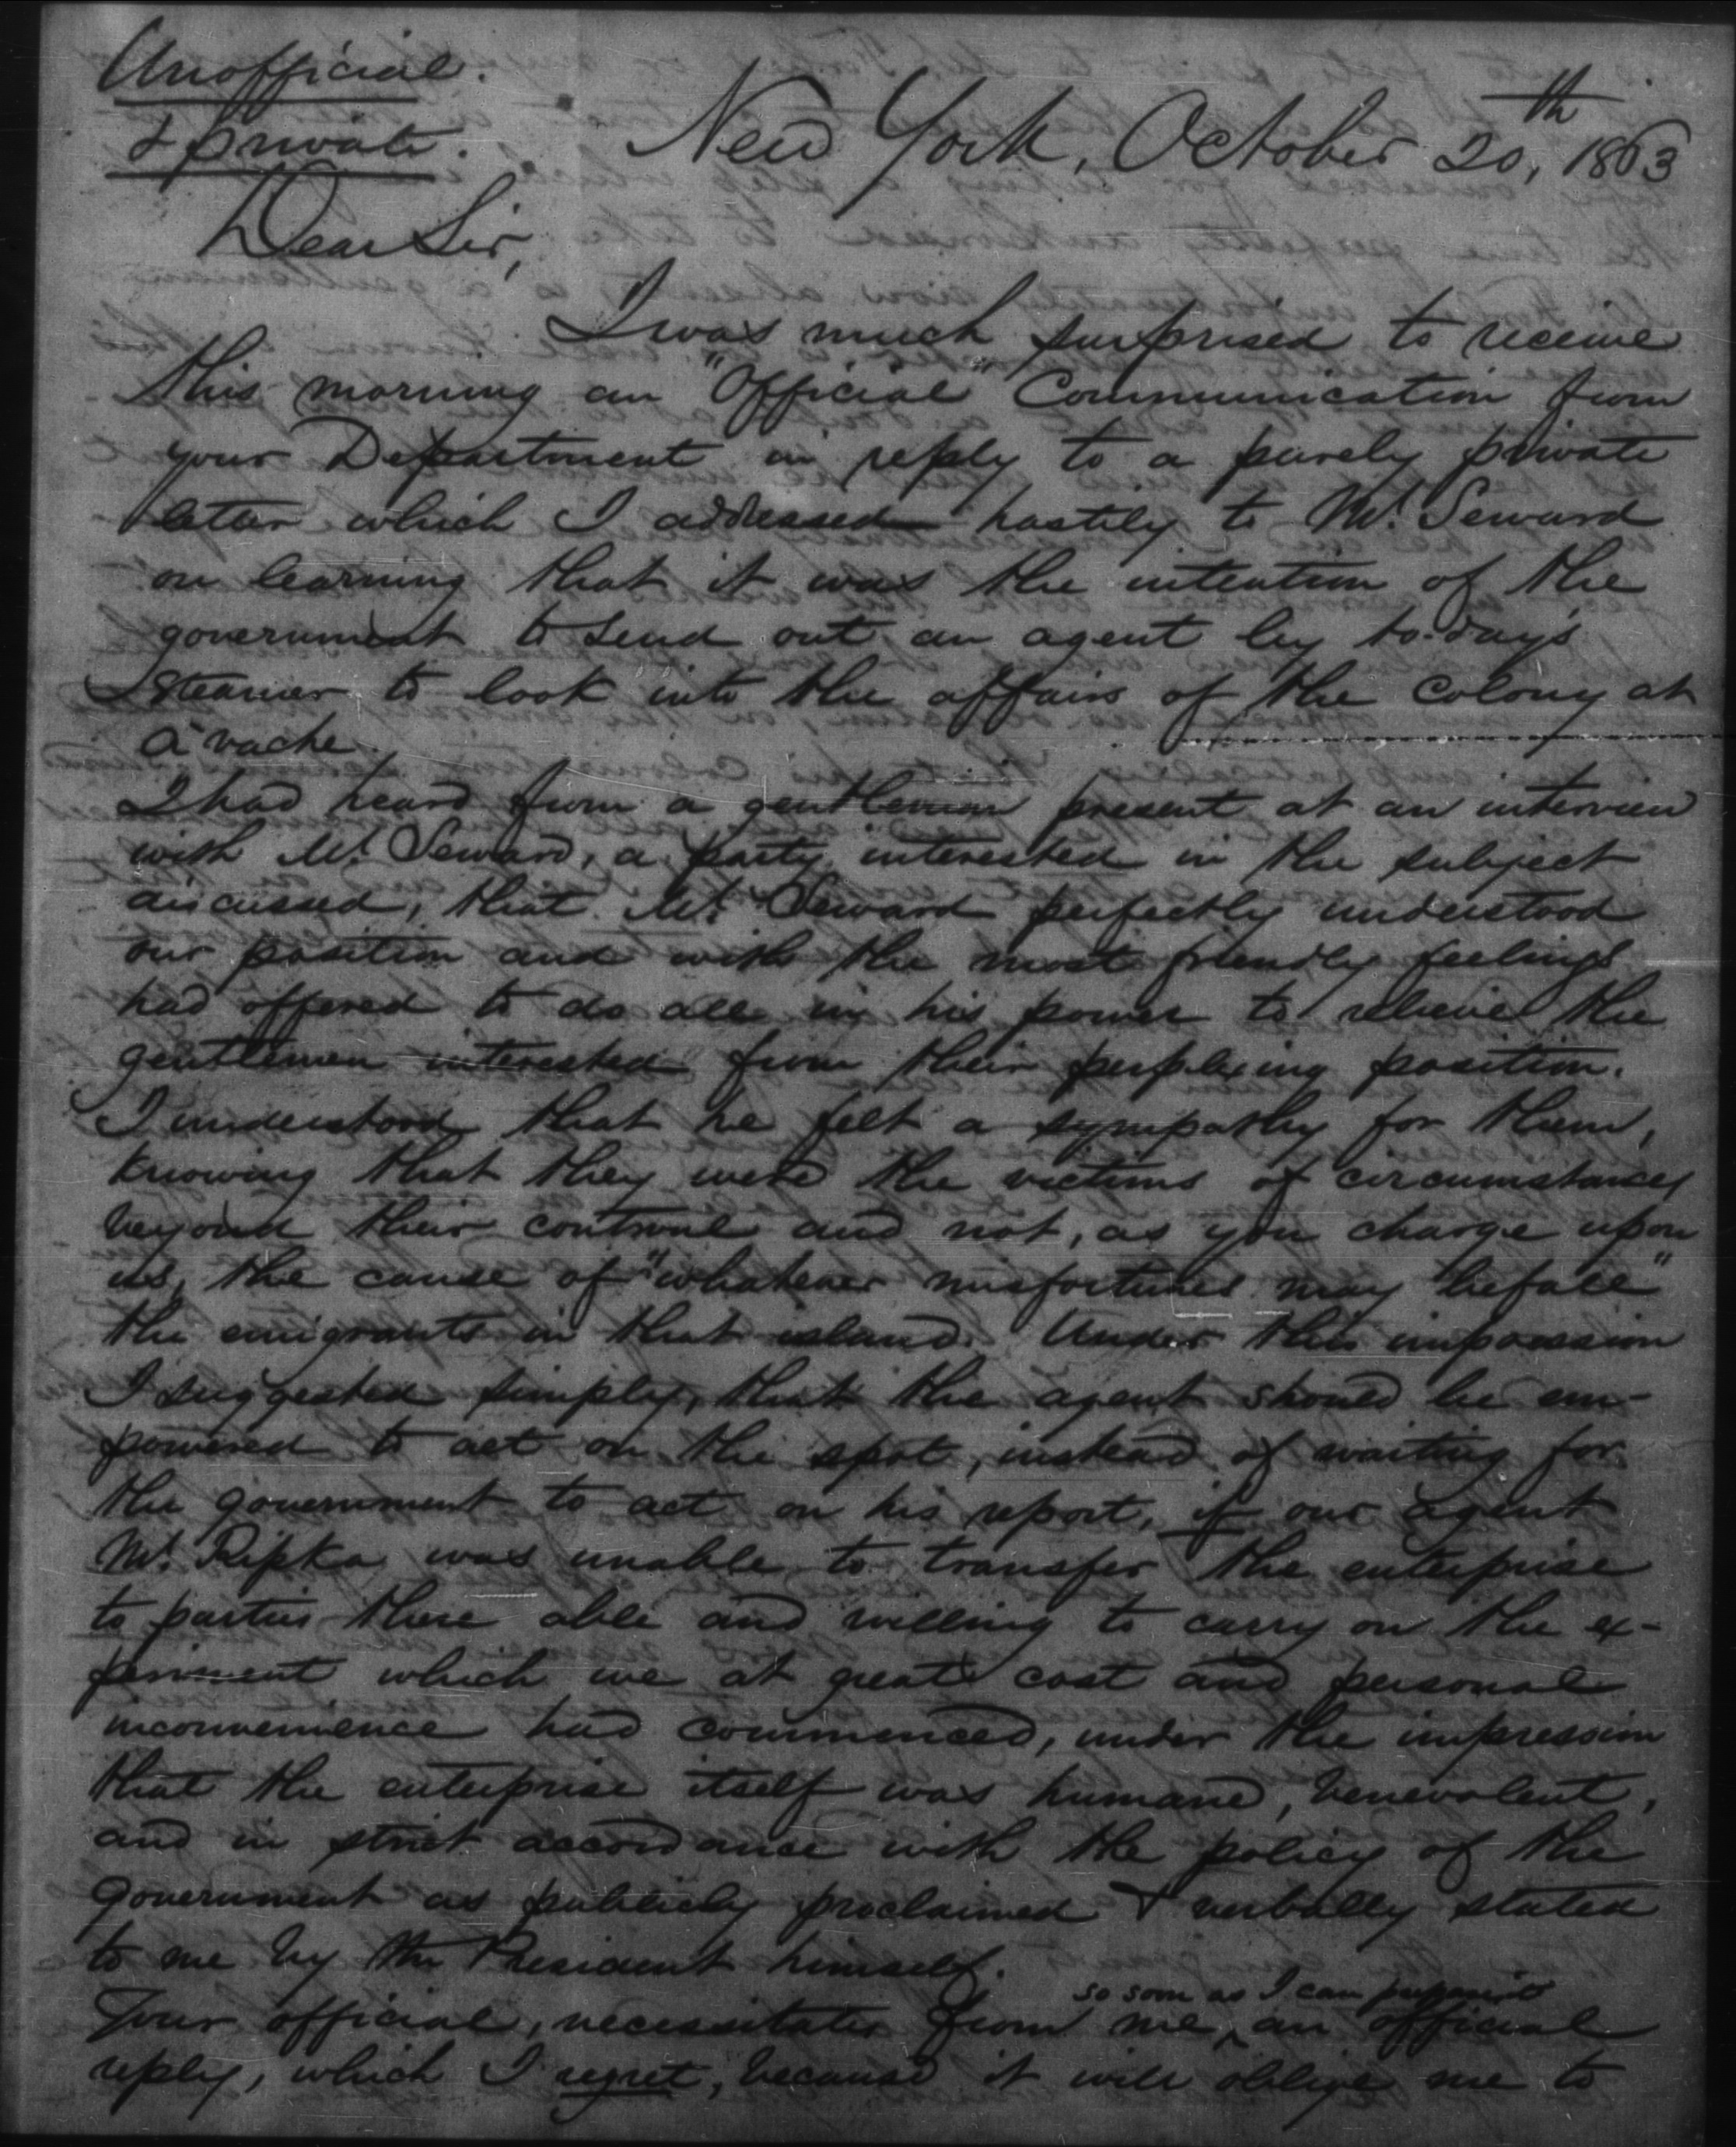 Unofficial.
& private.
New York, October 20,th 1863
Dear Sir,
I was much surprised to receive
this morning an "Official" Communication from
your Department in reply to a purely private
letter which I addressed hastily to Mr. Seward
on learning that it was the intention of the
government to send out an agent by to-day's
steamer to look into the affairs of the Colony at
A'vache.
I had heard from a gentleman present at an interview
with Mr. Seward, a party interested in the subject
discussed, that Mr. Seward perfectly understood
our position and with the most friendly feelings
had offered to do all in his power to relieve the
gentlemen interested from their perplexing position.
I understood that he felt a sympathy for them,
knowing that they were the victims of circumstances
beyond their controul and not, as you charge upon
us, the cause of "whatever misfortunes may befall"
the emigrants in that island. Under this impression
I suggested simply, that the agent should be em-
powered to act on the spot, instead of waiting for
the government to act on his report, if our agent
Mr. Ripka was unable to transfer the enterprise
to parties there able and willing to carry on the ex-
periment which we at great cost and personal
inconvenience had commenced, under the impression
that the enterprise itself was humane, benevolent,
and in strict accordance with the policy of the
Government as publicly proclaimed & verbally stated
to me by the President himself.
so soon as I can prepare it
Your official, necessitates from me ^ an official
reply, which I regret, because it will oblige me to